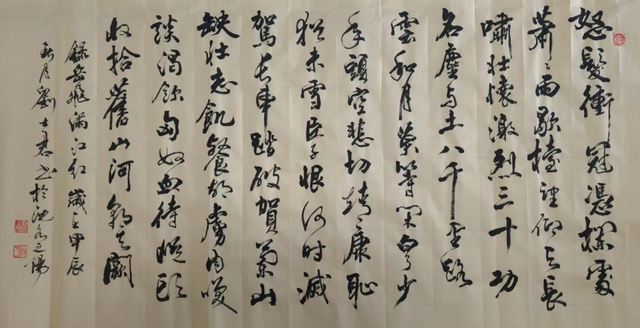 怒髮衝冠憑欄處
蕭々雨歇擡望仰天長
嘯壯懷激烈三十功
名塵與土八千里路
雲和月莫等閑白了少
年頭空悲切靖康恥
猶未雪臣子恨何時滅
駕長車踏破賀蘭山
缺壯志飢餐胡虜肉笑
談渴飲匈奴血待從頭
收拾舊山河朝天闕
錄岳飛滿江紅 歲在甲辰
春月劉士君書於沈水之陽